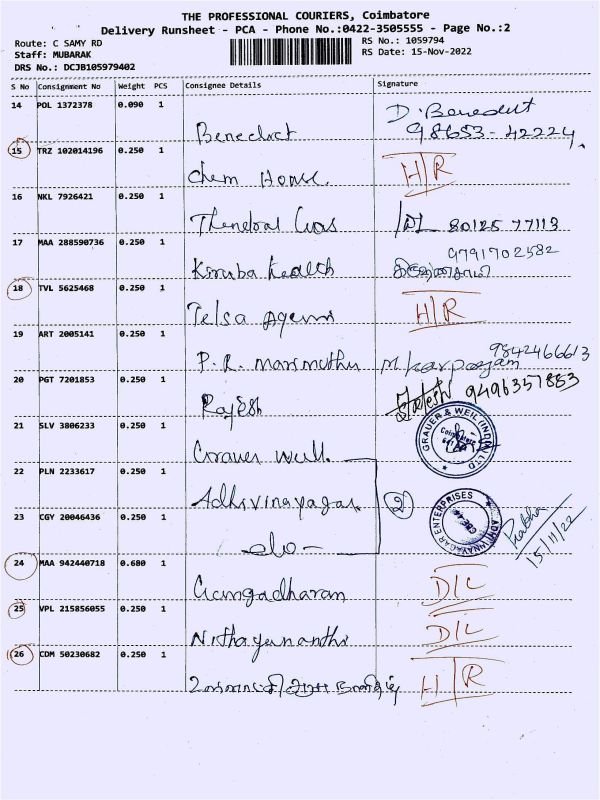 THE PROFESSIONAL COURIERS, Coimbatore
Delivery Runsheet - PCA - Phone No.:0422-3505555 - Page No.:2
Route: C SAMY RD
RS No.: 1059794
Staff: MUBARAK
RS Date: 15-Nov-2022
DRS No.: DCJB105979402
S No Consignment No Weight PCS Consignee Details Signature
14 POL 1372378 0.090 1
Benedict D. Benedict
98653-42224
15 TRZ 102014196 0.250 1
Chem House. H/R
16 NKL 7926421 0.250 1
80125 77113
17 MAA 288590736 0.250 1
Kiruba health 9791702582
18 TVL 5625468 0.250 1
Telsa H/R
19 ART 2005141 0.250 1
P. R. Marimuthu M. Karpagam 9842466613
20 PGT 7201853 0.250 1
Rajesh 9496357883
21 SLV 3806233 0.250 1
Grauer Weil. GRAUER & WEIL (INDIA) LTD
22 PLN 2233617 0.250 1
Adhivinayagar 2 ENTERPRISES
23 CGY 20046436 0.250 1
-do- Prabha
15/11/22
24 MAA 942440718 0.680 1
Gangadharan D/L
25 VPL 215856055 0.250 1
Nithayananthi D/L
26 CDM 50230682 0.250 1
H/R